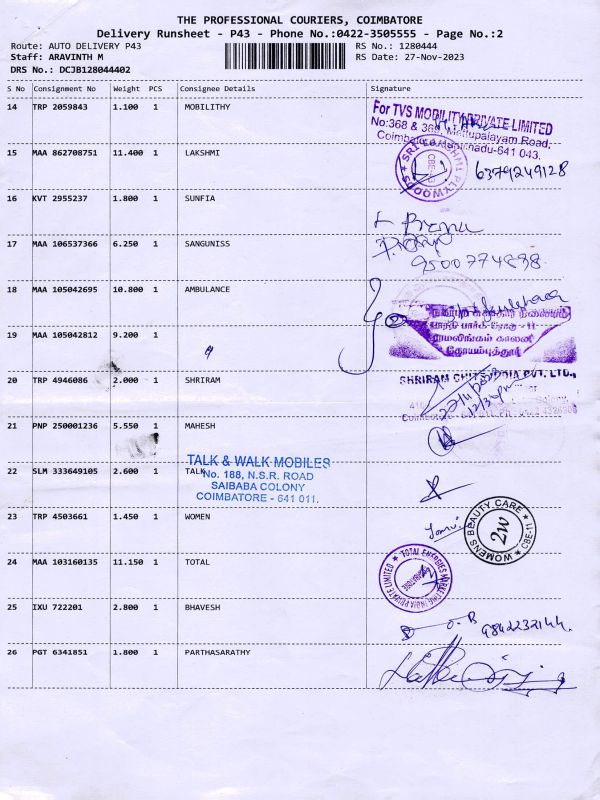 THE PROFESSIONAL COURIERS, COIMBATORE
Delivery Runsheet - P43 - Phone No.:0422-3505555 - Page No.:2
Route: AUTO DELIVERY P43 RS No.: 1280444
Staff: ARAVINTH M RS Date: 27-Nov-2023
DRS No.: DCJB128044402
S No Consignment No Weight PCS Consignee Details Signature
14 TRP 2059843 1.100 1 MOBILITHY
For TVS MOBILITY PRIVATE LIMITED
No:368 & 369, Mettupalayam Road,
Coimbatore, Tamilnadu-641 043.
15 MAA 862708751 11.400 1 LAKSHMI
SRI LAKSHMI PLYWOODS CBE
6379249128
16 KVT 2955237 1.800 1 SUNFIA
17 MAA 106537366 6.250 1 SANGUNISS
9500774898
18 MAA 105042695 10.800 1 AMBULANCE
பாரதி பார்க் ரோடு - 11
ராமலிங்கம் காலனி
கோயம்புத்தூர்
19 MAA 105042812 9.200 1
20 TRP 4946086 2.000 1 SHRIRAM
SHRIRAM CHITS INDIA PVT. LTD.,
21 PNP 250001236 5.550 1 MAHESH
TALK & WALK MOBILES
22 SLM 333649105 2.600 1 TALK
No. 188, N.S.R. ROAD
SAIBABA COLONY
COIMBATORE - 641 011.
23 TRP 4503661 1.450 1 WOMEN
WOMENS BEAUTY CARE CBE-11
2W
24 MAA 103160135 11.150 1 TOTAL
TOTAL ENERGIES MARKETING INDIA PRIVATE LIMITED
25 IXU 722201 2.800 1 BHAVESH
9842232144
26 PGT 6341851 1.800 1 PARTHASARATHY